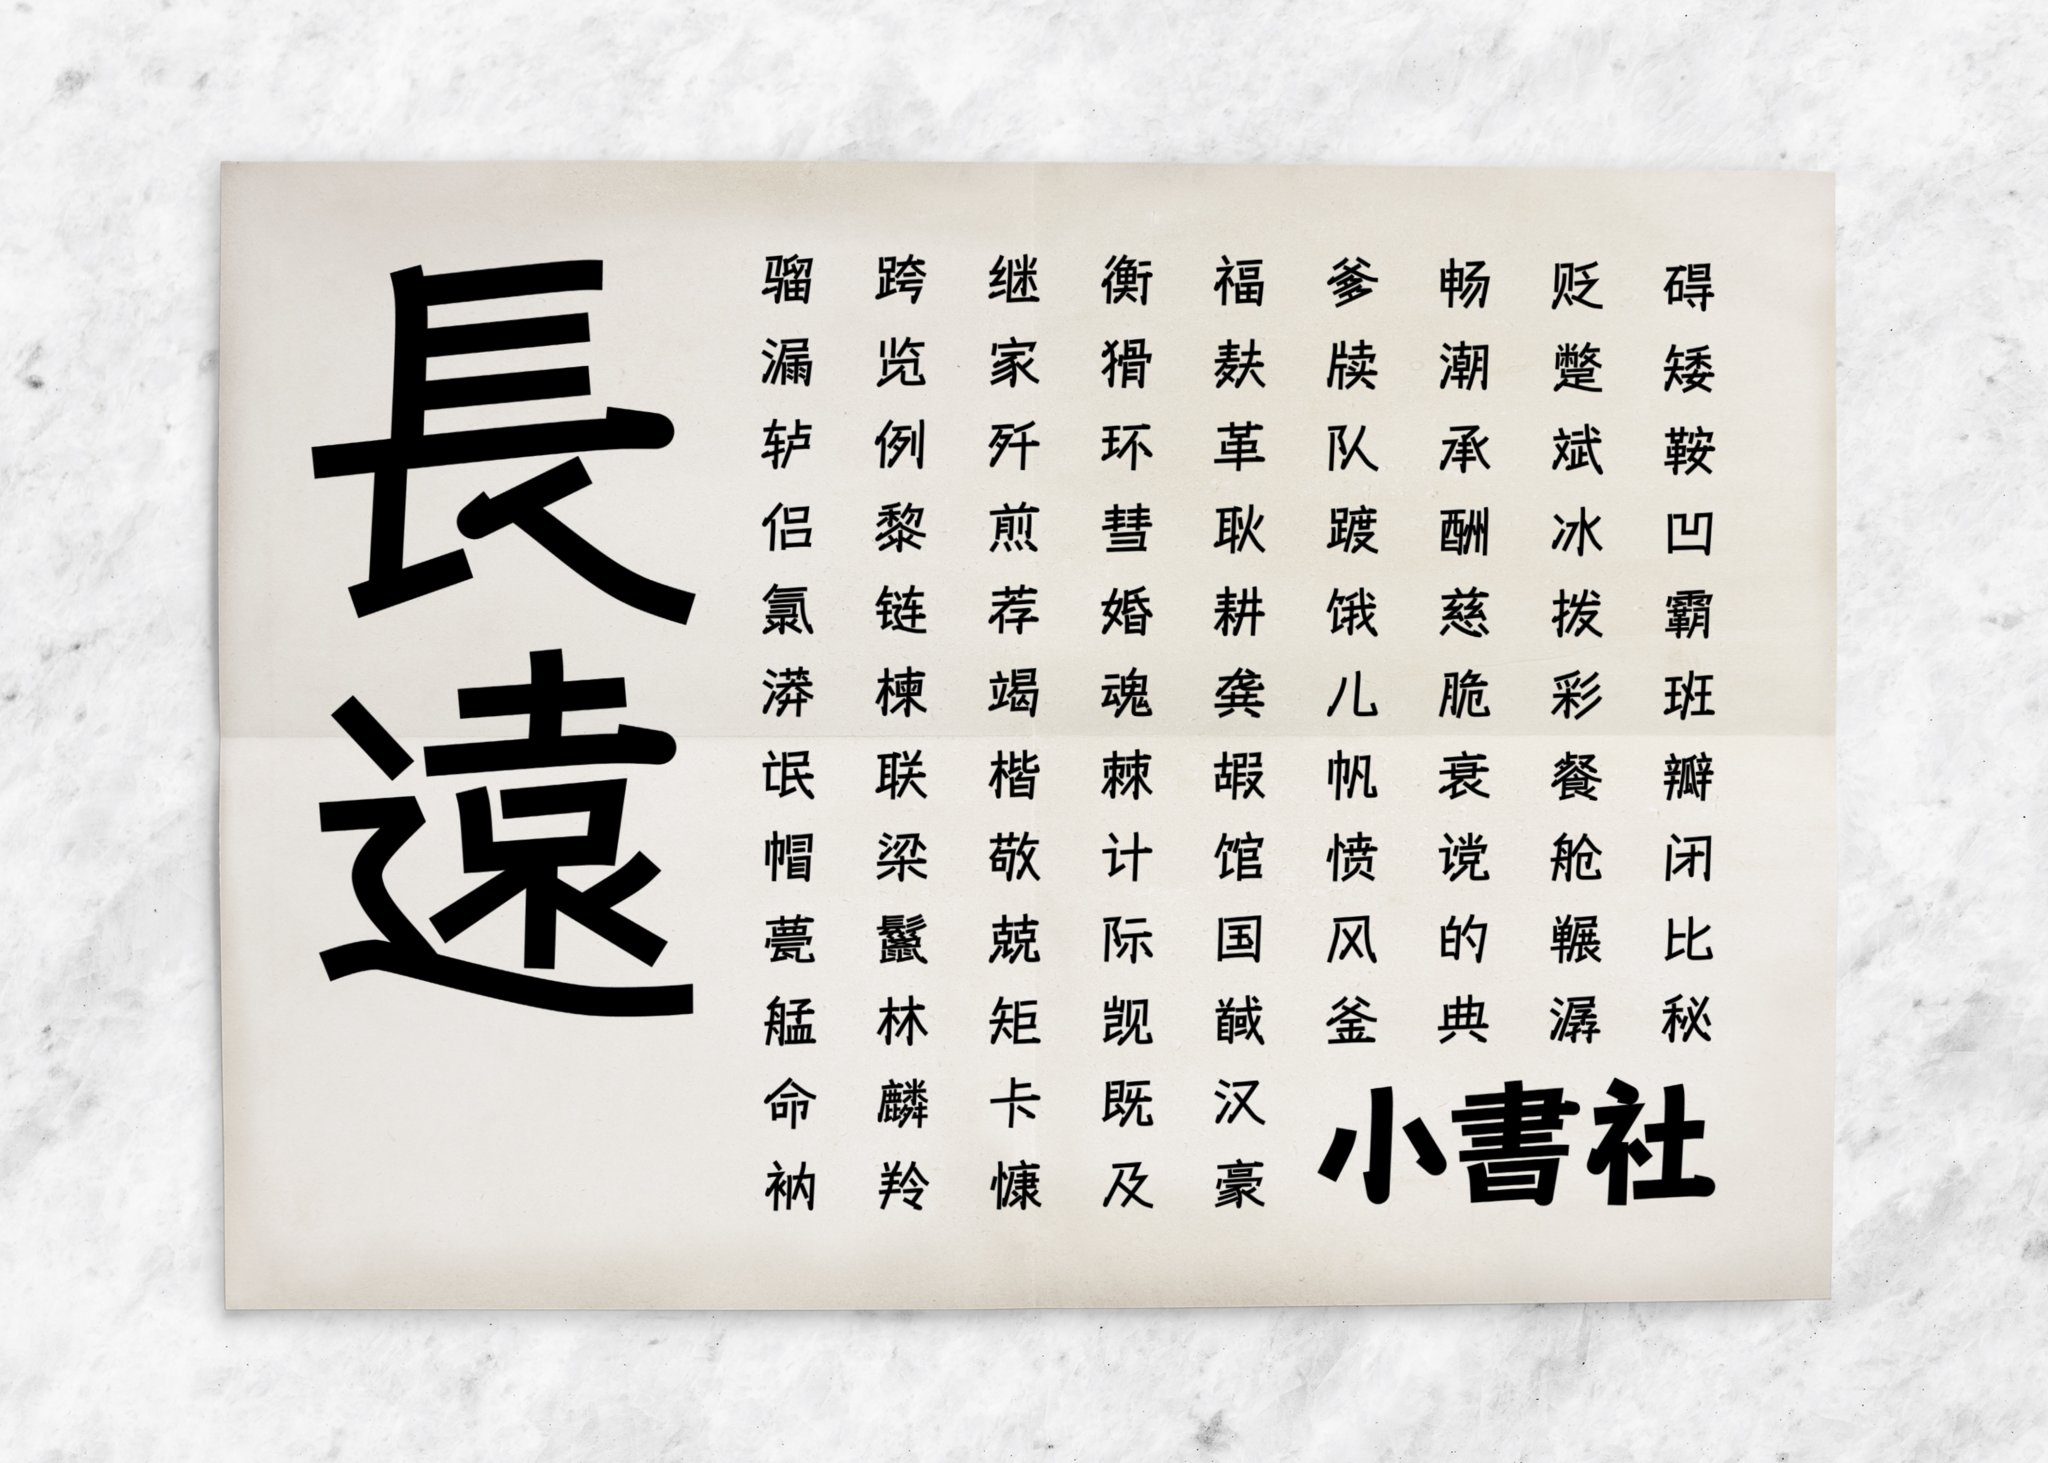 長遠
碍矮鞍凹霸班瓣闭比秘
贬蹩斌冰拨彩餐舱冁潺
畅潮承酬慈脆衰谠的典
爹牍队踱饿儿帆愤风釜
福麸革耿耕龚嘏馆国馘汉豪
衡猾环彗婚魂棘计际觊既及
继家歼煎荐竭楷敬兢矩卡慷
跨览例黎链楝联梁鬣林麟羚
骝漏轳侣氯漭氓帽甍艋命衲
小書社